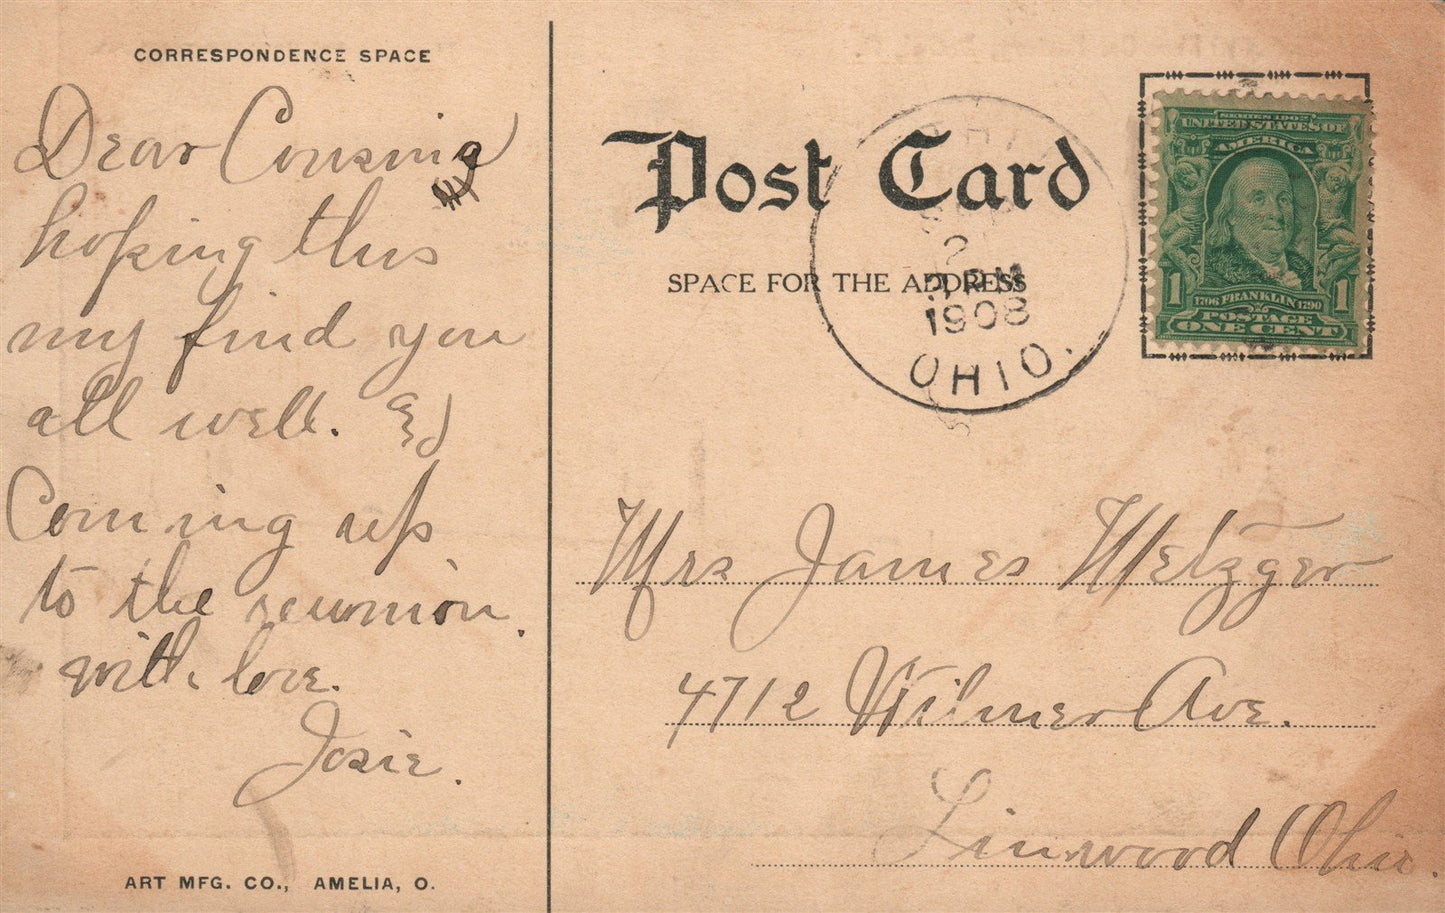 CORRESPONDENCE SPACE
Dear Cousin
hoping this
my find you
all well.
Coming up
to the reunion.
with love.
Josie.
ART MFG. CO., AMELIA, O.
Post Card
SPACE FOR THE ADDRESS
2
PM
1908
OHIO.
SERIES 1902
UNITED STATES OF
AMERICA
1 1
1706 FRANKLIN 1790
POSTAGE
ONE CENT
Mrs James Metzger
4712 Wilmer Ave.
Linwood Ohio.